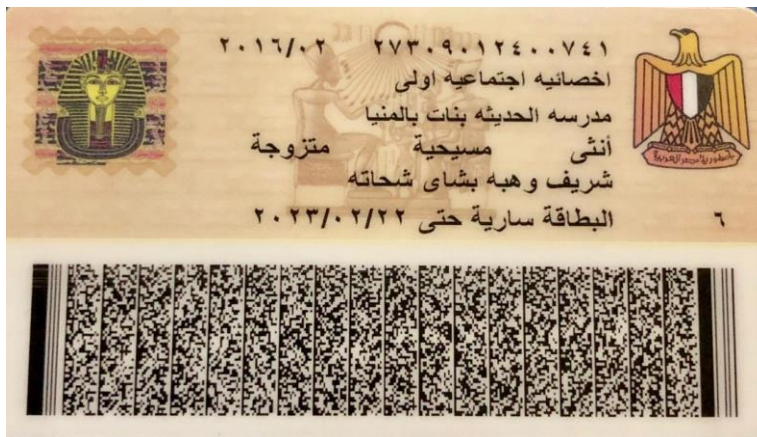 ٢٧٣٠٩٠١٢٤٠٠٧٤١ ٢٠١٦/٠٢
اخصائيه اجتماعيه اولى
مدرسه الحديثه بنات بالمنيا
أنثى مسيحية متزوجة
شريف وهبه بشاى شحاته
البطاقة سارية حتى ٢٠٢٣/٠٢/٢٢
٦
جمهورية مصر العربية